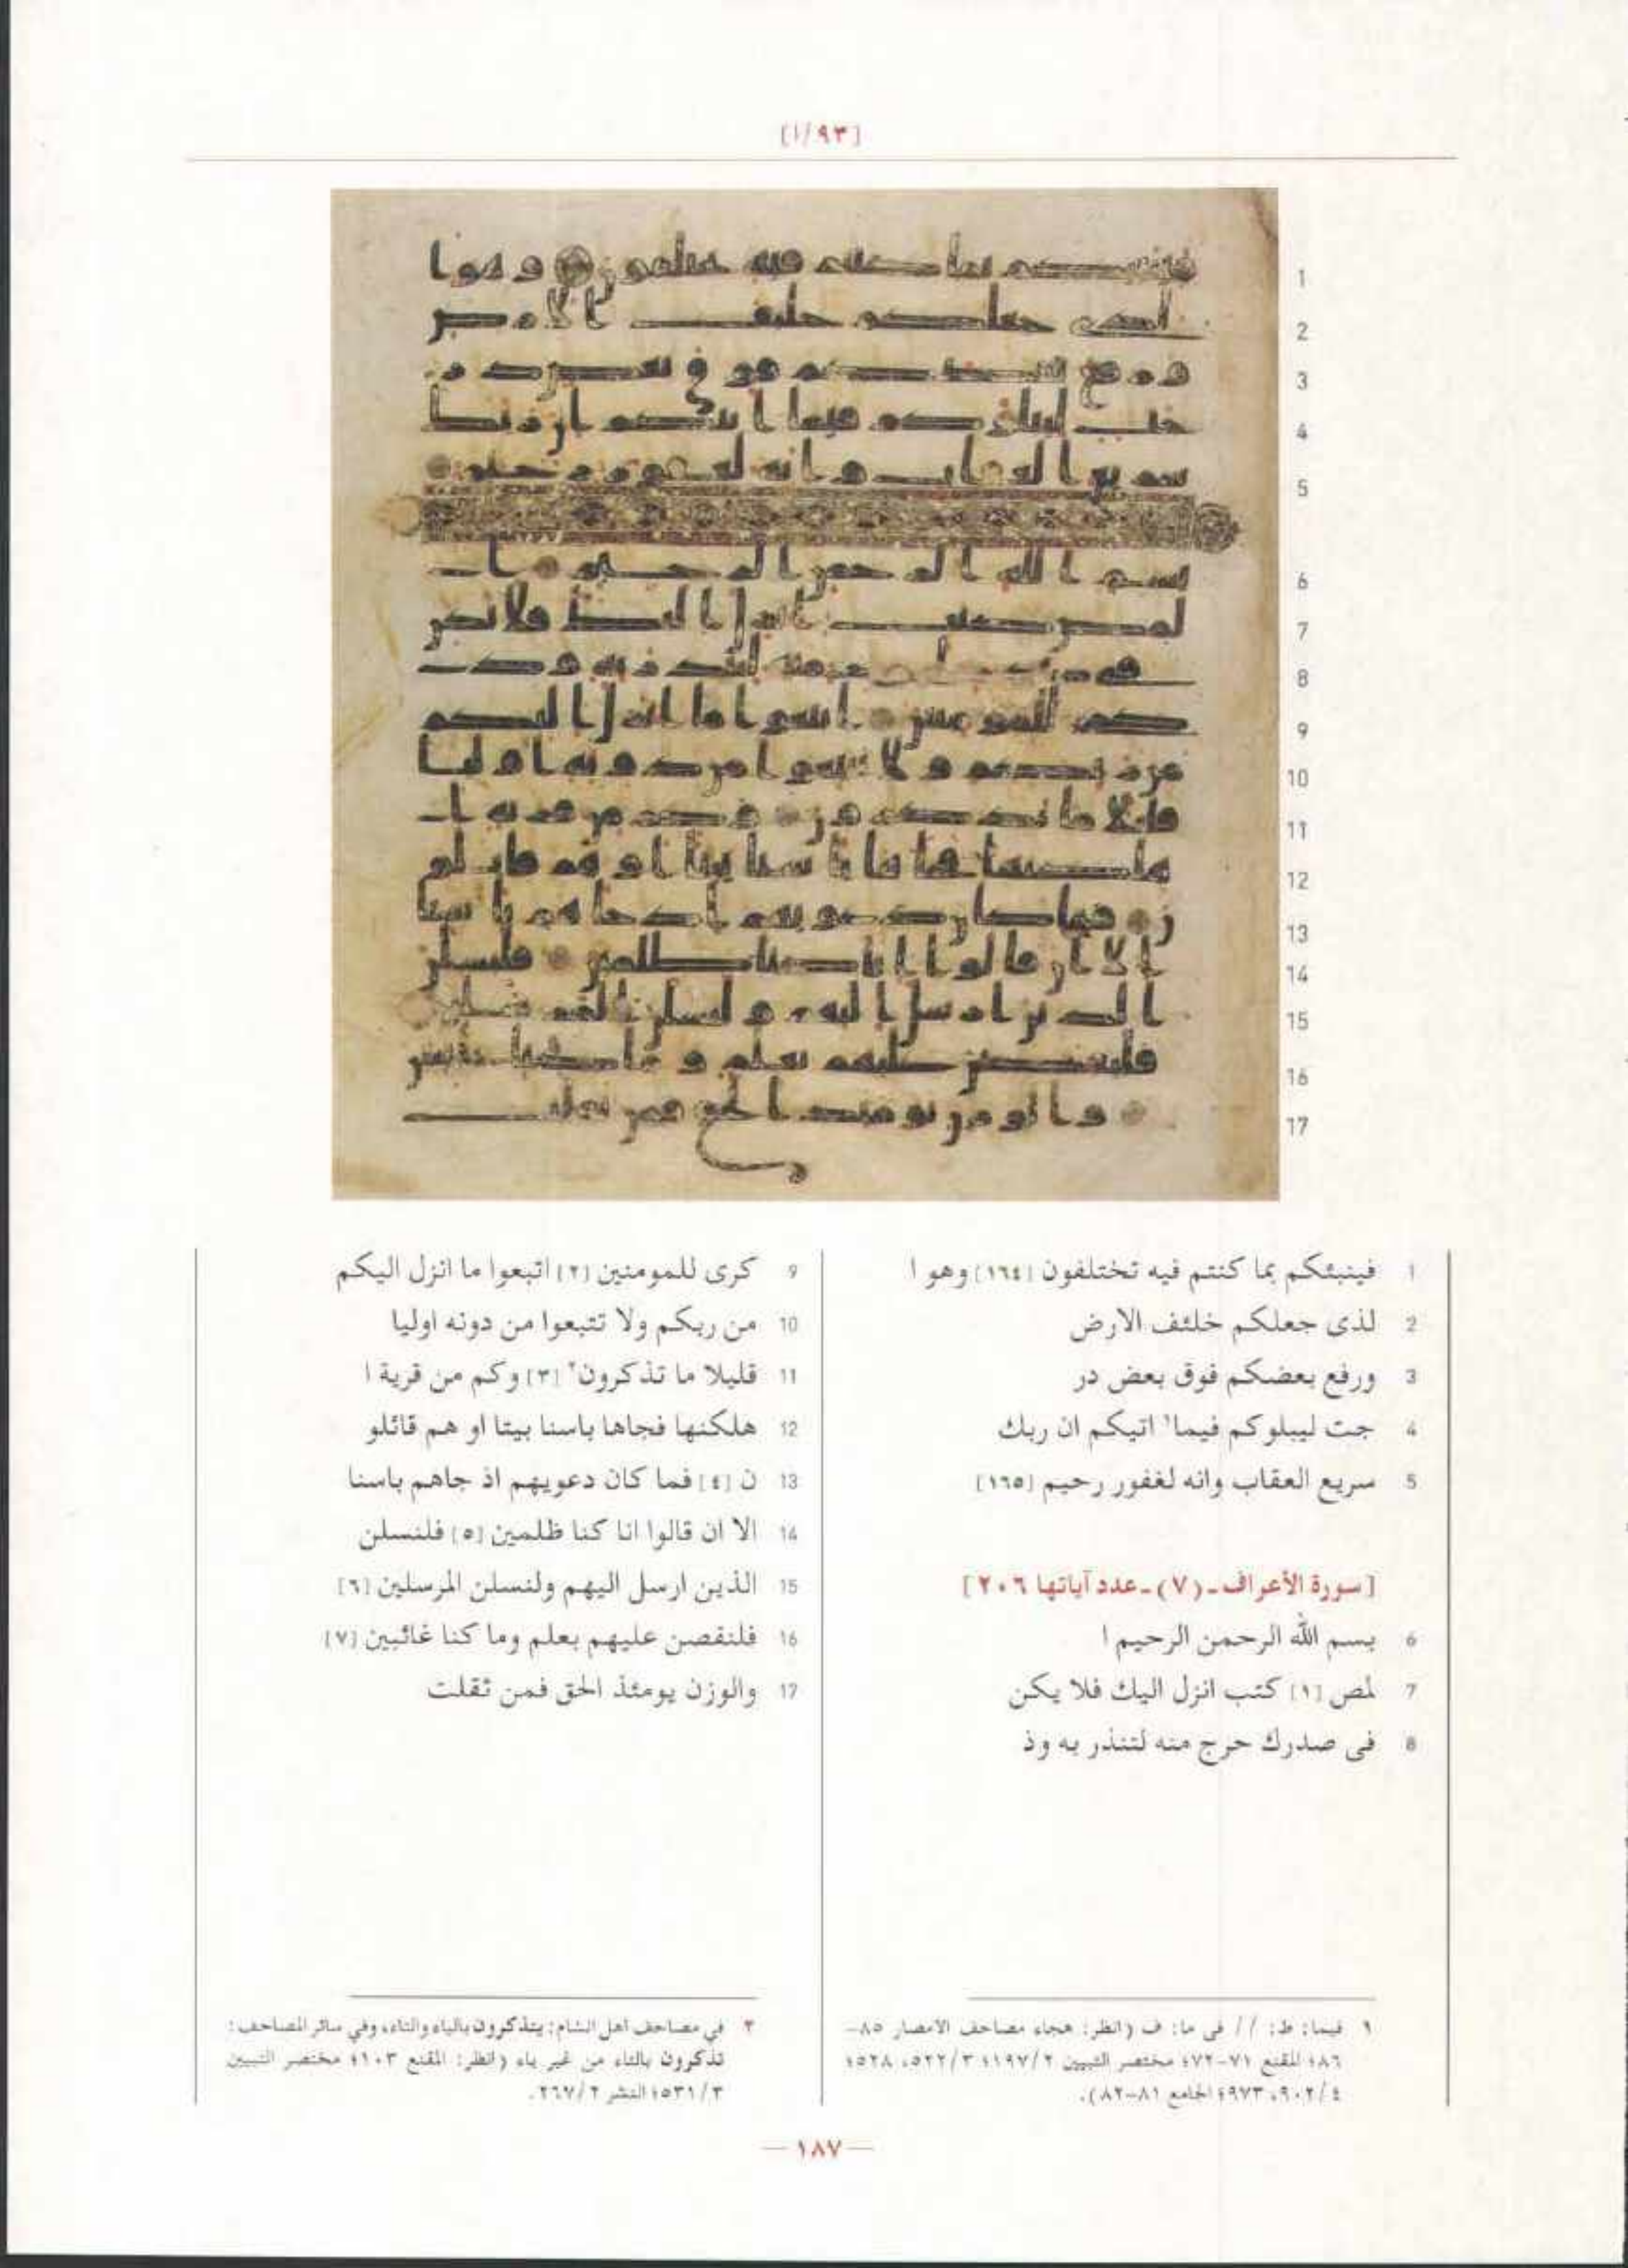 [٩٣/ا]
1
2
3
4
5
6
7
8
9
10
11
12
13
14
15
16
17
1 فينبئكم بما كنتم فيه تختلفون [١٦٤] وهو ا
2 لذى جعلكم خلئف الارض
3 ورفع بعضكم فوق بعض در
4 جت ليبلوكم فيما١ اتيكم ان ربك
5 سريع العقاب وانه لغفور رحيم [١٦٥]
[سورة الأعراف ـ (٧) ـ عدد آياتها ٢٠٦]
6 بسم الله الرحمن الرحيم ا
7 لمص [١] كتب انزل اليك فلا يكن
8 فى صدرك حرج منه لتنذر به وذ
9 كرى للمومنين [٢] اتبعوا ما انزل اليكم
10 من ربكم ولا تتبعوا من دونه اوليا
11 قليلا ما تذكرون٢ [٣] وكم من قرية ا
12 هلكنها فجاها باسنا بيتا او هم قائلو
13 ن [٤] فما كان دعويهم اذ جاهم باسنا
14 الا ان قالوا انا كنا ظلمين [٥] فلنسلن
15 الذين ارسل اليهم ولنسلن المرسلين [٦]
16 فلنقصن عليهم بعلم وما كنا غائبين [٧]
17 والوزن يومئذ الحق فمن ثقلت
١ فيما: ط: // فى ما: ف (انظر: هجاء مصاحف الامصار ٨٥-
٨٦؛ المقنع ٧١-٧٢؛ مختصر التبيين ١٩٧/٢؛ ٥٢٢/٣، ٥٢٨؛
٩٠٢/٤، ٩٧٣؛ الجامع ٨١-٨٢).
٢ في مصاحف اهل الشام: يتذكرون بالياء والتاء، وفي سائر المصاحف:
تذكرون بالتاء من غير ياء (انظر: المقنع ١٠٣؛ مختصر التبيين
٥٣١/٣؛ النشر ٢٦٧/٢.
— ١٨٧ —